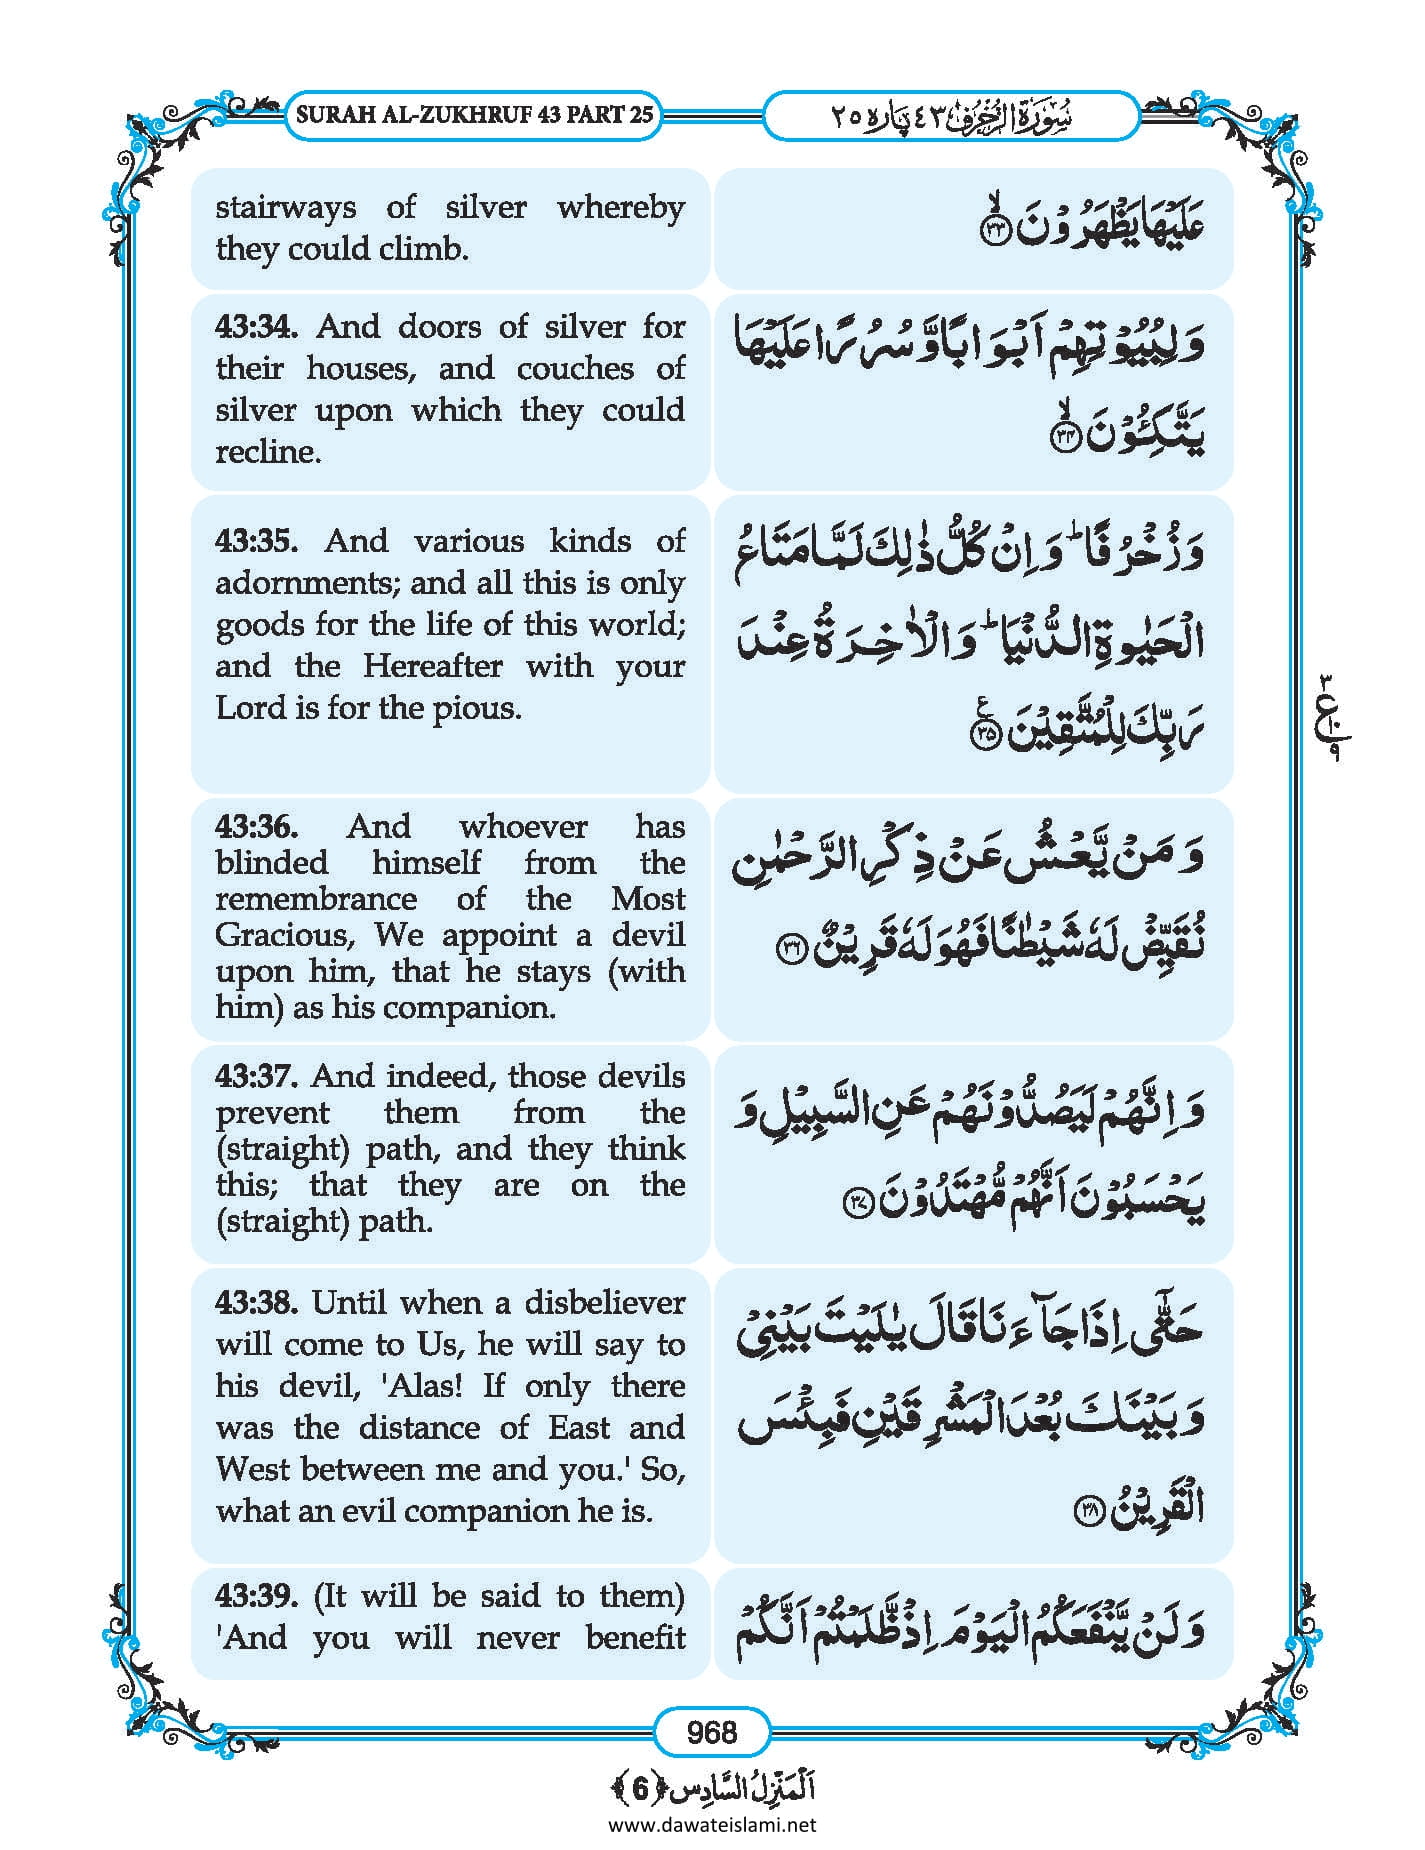 SURAH AL-ZUKHRUF 43 PART 25
سُوْرَةُ الزُّخْرُف ٤٣ پاره ٢٥
stairways of silver whereby
they could climb.
عَلَیْهَا یَظْهَرُوْنَۙ﴿۳۳﴾
43:34. And doors of silver for
their houses, and couches of
silver upon which they could
recline.
وَ لِبُیُوْتِهِمْ اَبْوَابًا وَّ سُرُرًا عَلَیْهَا
یَتَّكِـُٔوْنَۙ﴿۳۴﴾
43:35. And various kinds of
adornments; and all this is only
goods for the life of this world;
and the Hereafter with your
Lord is for the pious.
وَ زُخْرُفًاؕ وَ اِنْ كُلُّ ذٰلِكَ لَمَّا مَتَاعُ
الْحَیٰوةِ الدُّنْیَاؕ وَ الْاٰخِرَةُ عِنْدَ
رَبِّكَ لِلْمُتَّقِیْنَ۠﴿۳۵﴾ع
٣
ع
١٠
٩
43:36. And whoever has
blinded himself from the
remembrance of the Most
Gracious, We appoint a devil
upon him, that he stays (with
him) as his companion.
وَ مَنْ یَّعْشُ عَنْ ذِكْرِ الرَّحْمٰنِ
نُقَیِّضْ لَهٗ شَیْطٰنًا فَهُوَ لَهٗ قَرِیْنٌ﴿۳۶﴾
43:37. And indeed, those devils
prevent them from the
(straight) path, and they think
this; that they are on the
(straight) path.
وَ اِنَّهُمْ لَیَصُدُّوْنَهُمْ عَنِ السَّبِیْلِ وَ
یَحْسَبُوْنَ اَنَّهُمْ مُّهْتَدُوْنَ﴿۳۷﴾
43:38. Until when a disbeliever
will come to Us, he will say to
his devil, 'Alas! If only there
was the distance of East and
West between me and you.' So,
what an evil companion he is.
حَتّٰۤى اِذَا جَآءَنَا قَالَ یٰلَیْتَ بَیْنِیْ
وَ بَیْنَكَ بُعْدَ الْمَشْرِقَیْنِ فَبِئْسَ
الْقَرِیْنُ﴿۳۸﴾
43:39. (It will be said to them)
'And you will never benefit
وَ لَنْ یَّنْفَعَكُمُ الْیَوْمَ اِذْ ظَّلَمْتُمْ اَنَّكُمْ
968
اَلْمَنْزِلُ السَّادِس ﴿6﴾
www.dawateislami.net